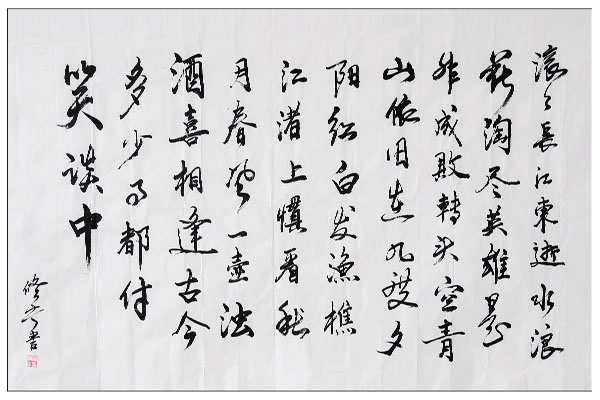 滚々長江東逝水浪
花淘尽英雄是
非成敗轉头空青
山依旧在几度夕
阳红白发渔樵
江渚上慣看秋
月春风一壶浊
酒喜相逢古今
多少事都付
笑谈中